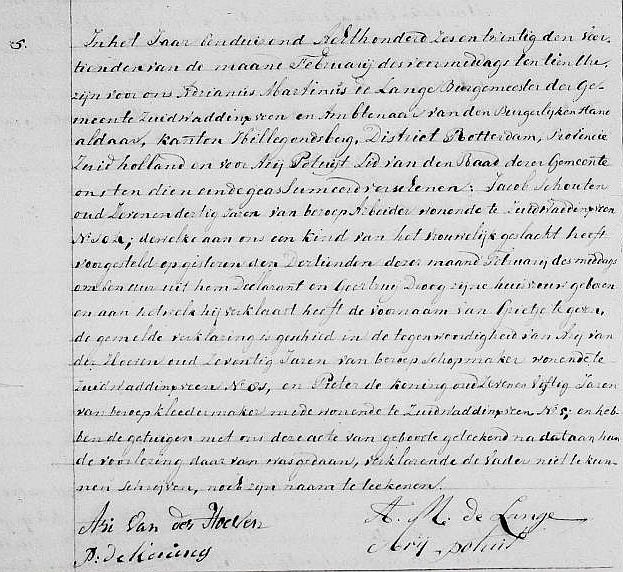 5.
In het Jaar Eenduizend Achthonderd Zesentwintig den veer
tienden van de maane Februarij des voormiddags ten tien Uhr.
zijn voor ons Adrianus Martinus de Lange Burgemeester der Ge
meente Zuidwaddinxveen en Ambtenaar van den Burgerlijken Stand
aldaar, kanton Hillegondsberg, District Rotterdam, Provincie
Zuid holland en voor Arij Lid van den Raad dezer Gemeente
ons ten dien einde geassumeerd verschenen: Jacob Schouten
oud Zevenendertig Jaren van beroep Arbeider wonende te Zuidwaddinxveen
No 102; dewelke aan ons een kind van het vrouwelijk geslacht heeft
voorgesteld op gisteren den Dertienden dezer maand Februarij des middags
om een uur uit hem Declarant en Geertruy Droog zijne huisvrouw geboren
en aan hetwelk hij verklaart heeft de voornaam van Grietje te geven,
de gemelde verklaring is geschied in de tegenwoordigheid van Arij van
der Hoeven oud Zeventig Jaren van beroep Schopmaker wonende te
Zuidwaddinxveen No 63, en Pieter de Koning oud Zevenen Vijftig Jaren
van beroep kleedermaker mede wonende te Zuidwaddinxveen No 5; en heb
ben de getuigen met ons deze acte van geboorte geteekend na dat aan hun
de voorlezing daar van was gedaan, verklarende de Vader niet te kun
nen schrijven, noch zijn naam te teekenen.
Ari Van der Hoeven
A. M. de Lange
P: de Koning
Arij